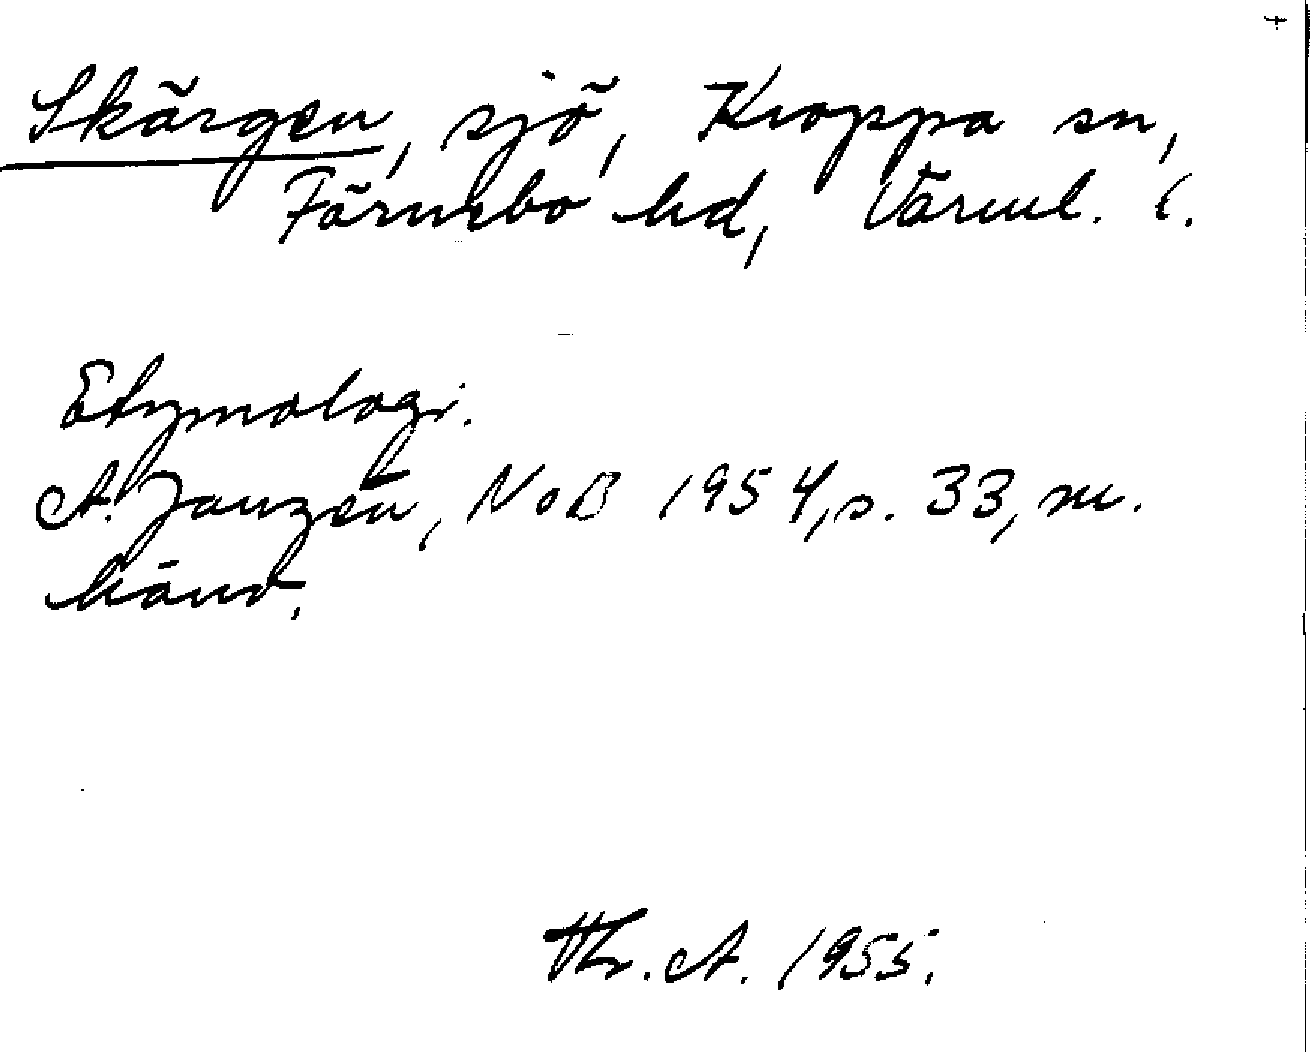 Skärgen, sjö, Kroppa sn,
Färnebo hd, Värml. l.
Etymologi.
A. Janzén, NoB 1954, s. 33, m.
hänv.
Th. A. 1955.